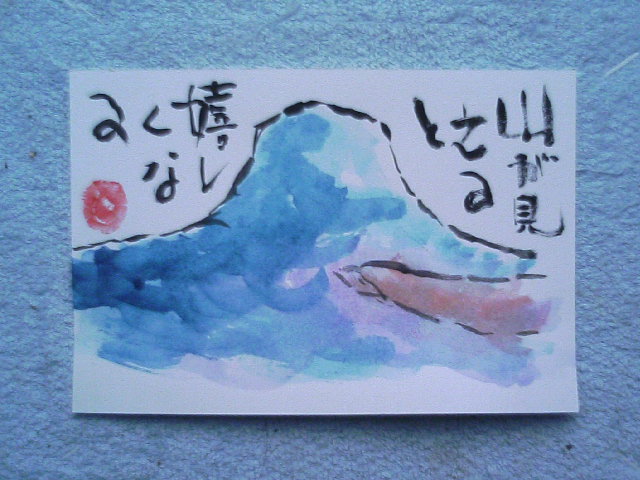 山が見
える
と
嬉し
くな
る